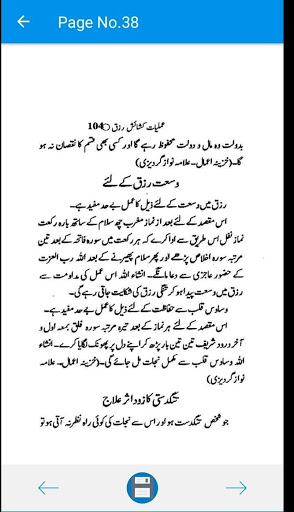 Page No.38
عملیات کشائش رزق 104
بدولت وہ مال و دولت محفوظ رہے گا اور کسی بھی قسم کا نقصان نہ ہو
گا۔ (خزینہ اعمال۔ علامہ نواز گردیزی)
وسعت رزق کے لئے
رزق میں وسعت کے لئے ذیل کا عمل بے حد مفید ہے۔
اس مقصد کے لئے بعد از نماز مغرب چھ سلام کے ساتھ بارہ رکعت
نماز نفل اس طریق سے ادا کرے کہ ہر رکعت میں سورہ فاتحہ کے بعد تین
مرتبہ سورہ اخلاص پڑھے اور پھر سلام پھیرنے کے بعد اللہ رب العزت
کے حضور عاجزی سے دعا مانگے۔ انشاء اللہ اس عمل کی مداومت سے
رزق میں وسعت پیدا ہو کر تنگی رزق کی شکایت جاتی رہے گی۔
وساوس قلب سے حفاظت کے لئے ذیل کا عمل بے حد مفید ہے۔
اس مقصد کے لئے ہر نماز کے بعد تیرہ مرتبہ سورہ فلق بمعہ اول و
آخر درود شریف تین تین بار پڑھ کر اپنے دل پر پھونک لگایا کرے۔ انشاء
اللہ وساوس قلب سے مکمل نجات مل جائے گی۔ (خزینہ اعمال۔ علامہ
نواز گردیزی)
تنگدستی کا زود اثر علاج
جو شخص تنگدست ہو اور اس سے نجات کی کوئی راہ نظر نہ آتی ہو تو